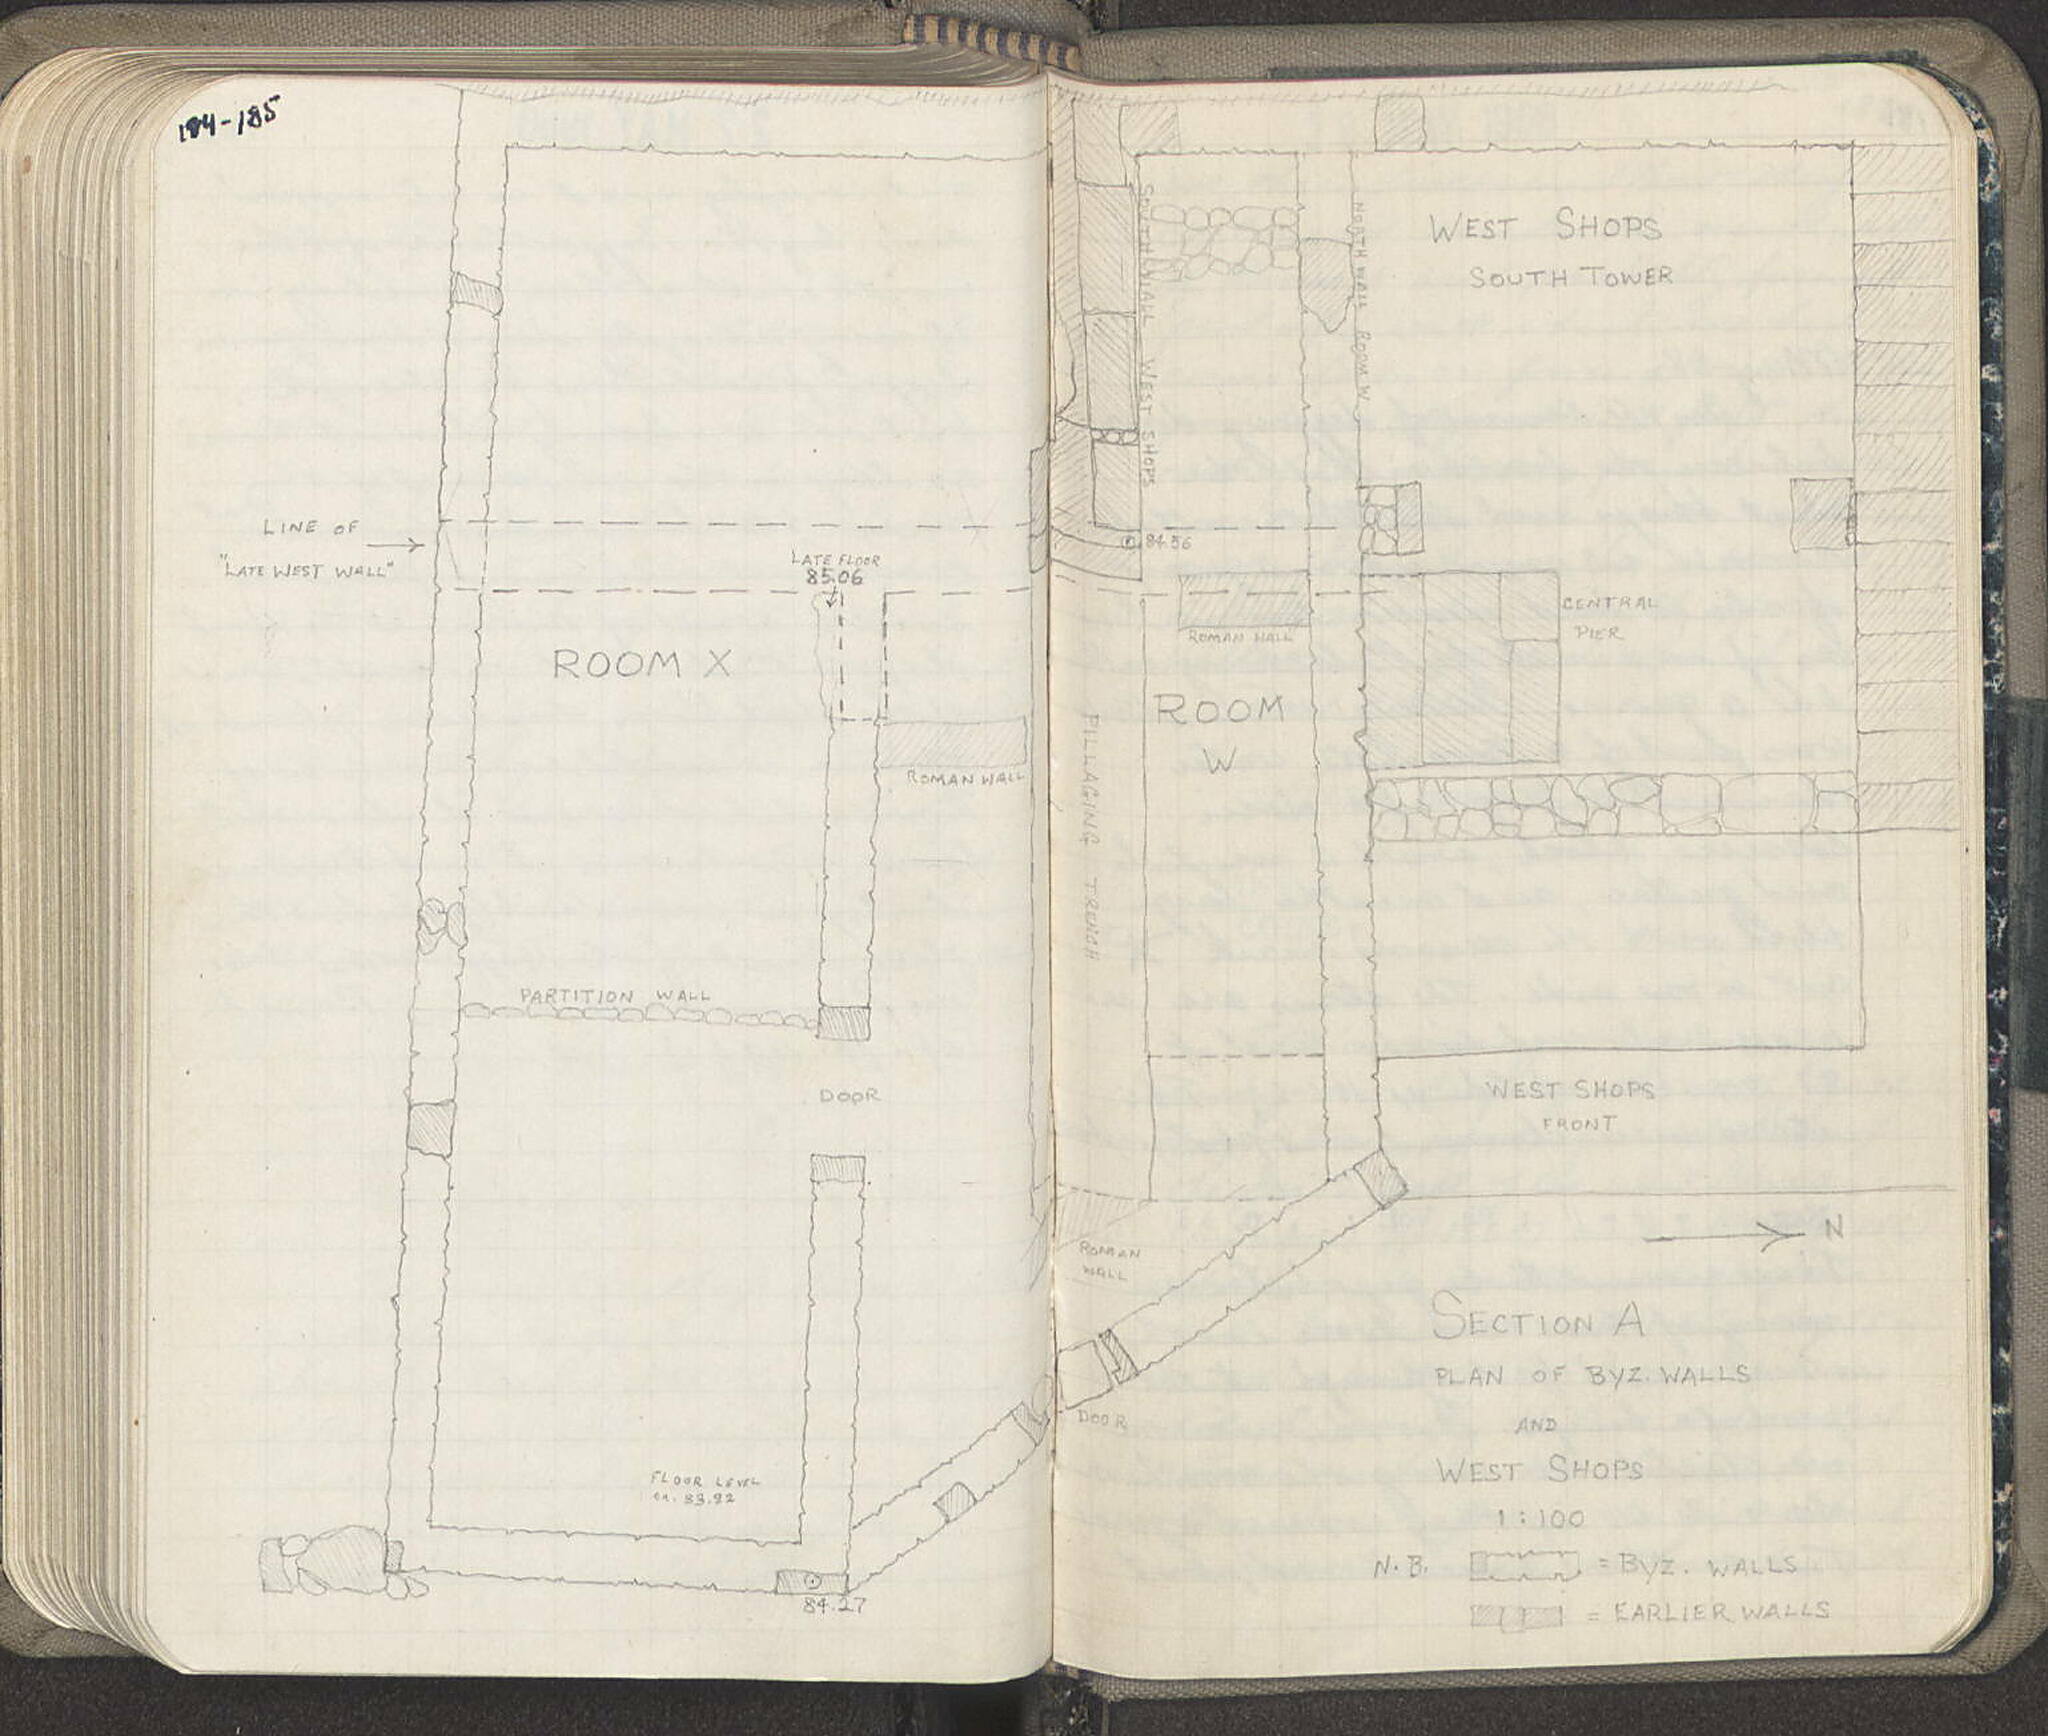 184-185
LINE OF
"LATE WEST WALL"
LATE FLOOR
85.06
ROOM X
ROMAN WALL
PARTITION WALL
DOOR
FLOOR LEVEL
ca. 83.92
84.27
SOUTH WALL WEST SHOPS
NORTH WALL ROOM W
WEST SHOPS
SOUTH TOWER
84.56
ROMAN WALL
CENTRAL
PIER
ROOM
W
PILLAGING TRENCH
WEST SHOPS
FRONT
ROMAN
WALL
N
DOOR
SECTION A
PLAN OF BYZ. WALLS
AND
WEST SHOPS
1:100
N.B. = BYZ. WALLS
= EARLIER WALLS